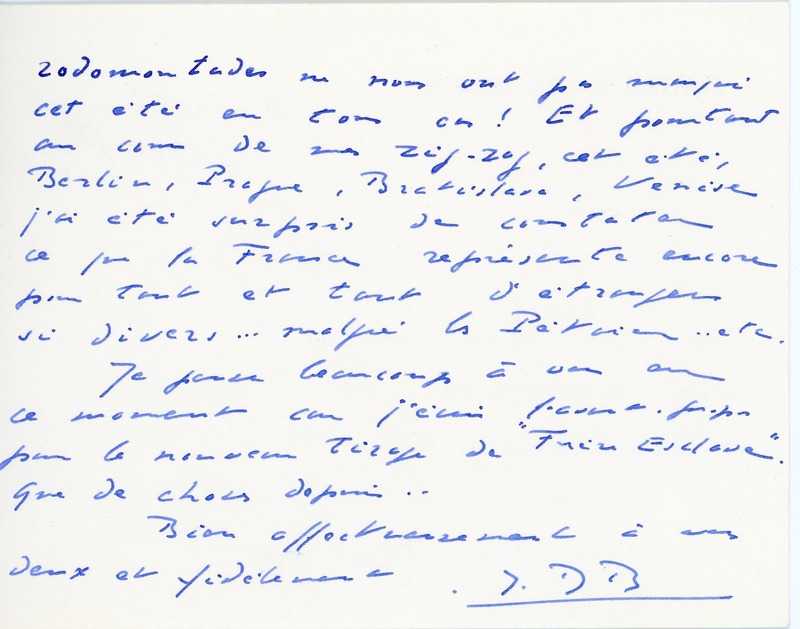 rodomontades ne nous ont pas manqué
cet été en tous cas ! Et pourtant
au cours de mes zig-zag, cet été,
Berlin, Prague, Bratislava, Venise
j'ai été surpris de constater
ce que la France représente encore
pour tant et tant d'étrangers
si divers... malgré les Pétain .. etc.
Je pense beaucoup à vous en
ce moment car j'écris l'avant-propos
pour le nouveau tirage de "Frère Esclave".
Que de choses depuis ..
Bien affectueusement à vous
deux et fidèlement . J. DB